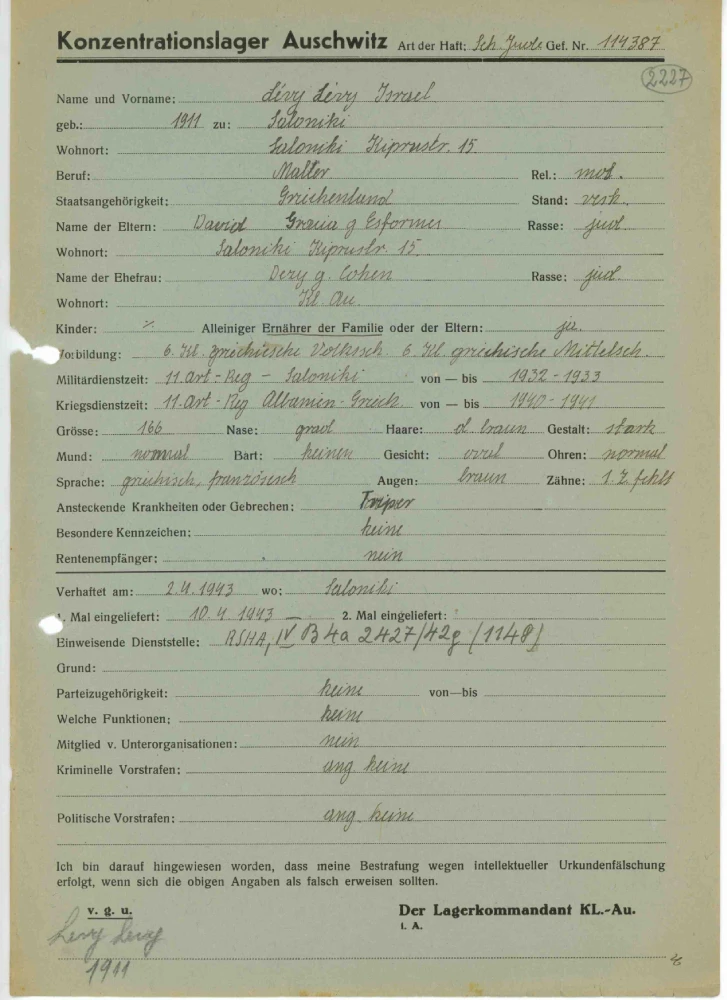 Konzentrationslager Auschwitz Art der Haft: Sch. Jude Gef. Nr. 114387
2227
Name und Vorname: Lévy Lévy Israel
geb.: 1911 zu: Saloniki
Wohnort: Saloniki Kiprustr. 15
Beruf: Rel.: mos.
Staatsangehörigkeit: Griechenland Stand: verh.
Name der Eltern: David Gracia g Esformes Rasse: jüd.
Wohnort: Saloniki Kiprustr. 15.
Name der Ehefrau: g. Cohen Rasse: jüd.
Wohnort: Kl. Au.
Kinder: %. Alleiniger Ernährer der Familie oder der Eltern: ja.
Vorbildung: 6. Kl. griechische Volkssch. 6 Kl. griechische Mittelsch.
Militärdienstzeit: 11. Art-Reg - Saloniki von — bis 1932 - 1933
Kriegsdienstzeit: 11. Art-Reg Albanien-Griech von — bis 1940 - 1941
Grösse: 166 Nase: grad Haare: d. braun Gestalt: stark
Mund: normal Bart: keinen Gesicht: oval Ohren: normal
Sprache: griechisch, französisch Augen: braun Zähne: 1. Z. fehlt
Ansteckende Krankheiten oder Gebrechen: Tripper
Besondere Kennzeichen: keine
Rentenempfänger: nein
Verhaftet am: 2.4.1943 wo: Saloniki
1. Mal eingeliefert: 10.4 1943 — 2. Mal eingeliefert:
Einweisende Dienststelle: RSHA, IV B4a 2427/42g (1148)
Grund:
Parteizugehörigkeit: keine von—bis
Welche Funktionen: keine
Mitglied v. Unterorganisationen: nein
Kriminelle Vorstrafen: ang. keine
Politische Vorstrafen: ang. keine
Ich bin darauf hingewiesen worden, dass meine Bestrafung wegen intellektueller Urkundenfälschung
erfolgt, wenn sich die obigen Angaben als falsch erweisen sollten.
v. g. u. Der Lagerkommandant KL.-Au.
I. A.
Levy Levy
1911